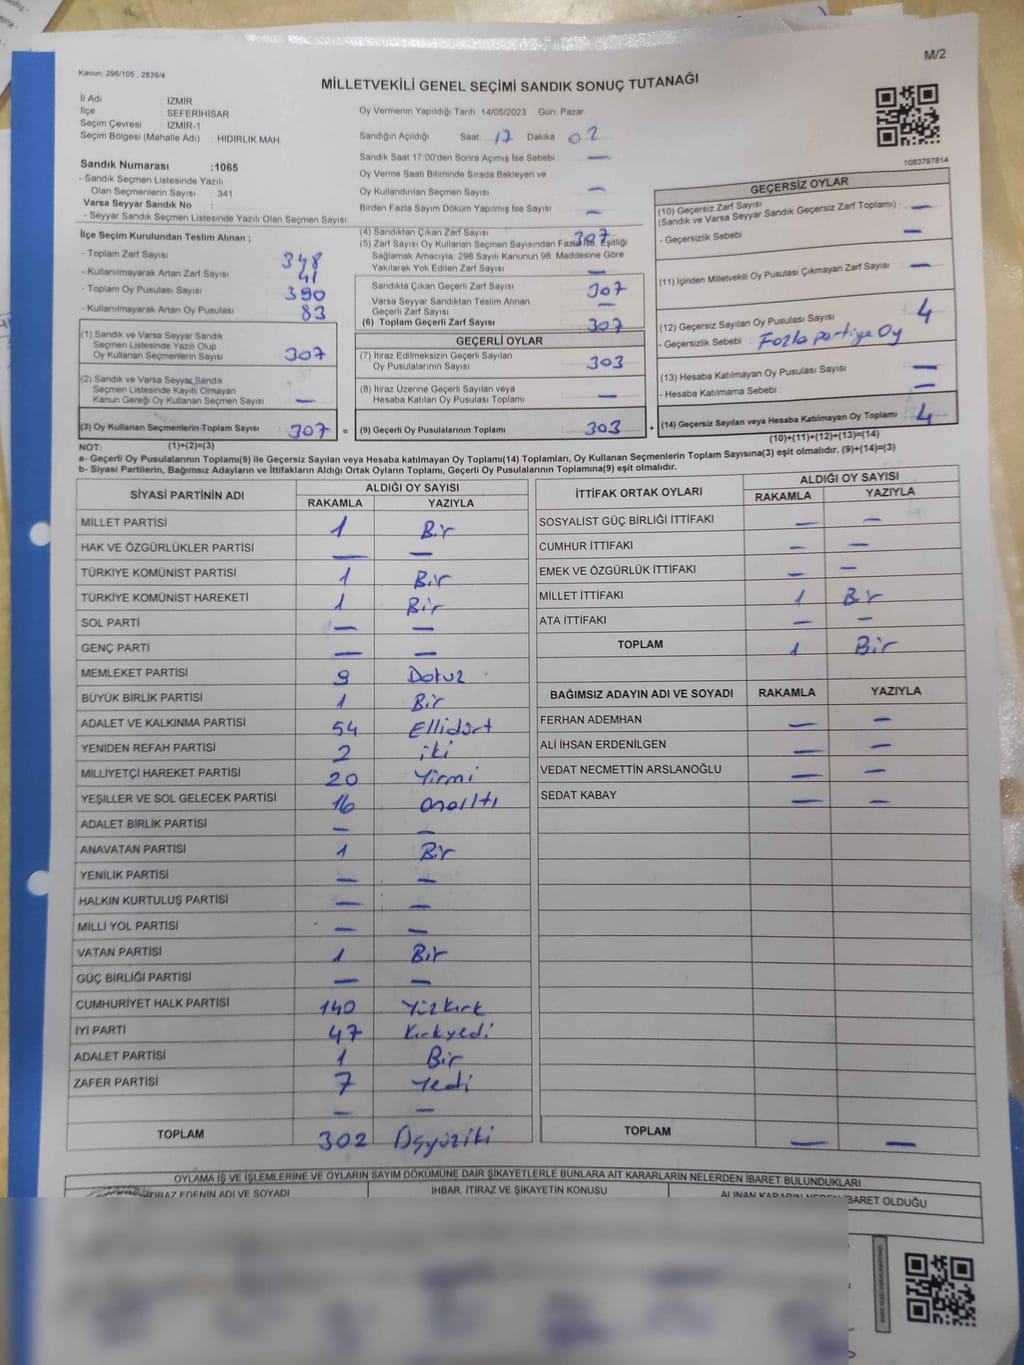 M/2
Kanun: 298/105 , 2839/4
MİLLETVEKİLİ GENEL SEÇİMİ SANDIK SONUÇ TUTANAĞI
İl Adı : İZMİR
İlçe : SEFERİHİSAR
Seçim Çevresi : İZMİR-1
Seçim Bölgesi (Mahalle Adı) : HIDIRLIK MAH
Sandık Numarası : 1065
- Sandık Seçmen Listesinde Yazılı
Olan Seçmenlerin Sayısı : 341
Varsa Seyyar Sandık No :
- Seyyar Sandık Seçmen Listesinde Yazılı Olan Seçmen Sayısı
Oy Vermenin Yapıldığı Tarih 14/05/2023 Gün: Pazar
Sandığın Açıldığı Saat 17 Dakika 02
Sandık Saat 17.00'den Sonra Açımış İse Sebebi —
Oy Verme Saati Bitiminde Sırada Bekleyen ve
Oy Kullandırılan Seçmen Sayısı —
Birden Fazla Sayım Döküm Yapılmış İse Sayısı —
1083797814
İlçe Seçim Kurulundan Teslim Alınan :
- Toplam Zarf Sayısı 348
- Kullanılmayarak Artan Zarf Sayısı 41
- Toplam Oy Pusulası Sayısı 390
- Kullanılmayarak Artan Oy Pusulası 83
(1) Sandık ve Varsa Seyyar Sandık
Seçmen Listesinde Yazılı Olup
Oy Kullanan Seçmenlerin Sayısı : 307
(2) Sandık ve Varsa Seyyar Sandık
Seçmen Listesinde Kayıtlı Olmayan
Kanun Gereği Oy Kullanan Seçmen Sayısı —
(3) Oy Kullanan Seçmenlerin Toplam Sayısı : 307 =
(4) Sandıktan Çıkan Zarf Sayısı 307
(5) Zarf Sayısı Oy Kullanan Seçmen Sayısından Fazla İse, Eşitliği
Sağlamak Amacıyla, 298 Sayılı Kanunun 98. Maddesine Göre
Yakılarak Yok Edilen Zarf Sayısı : —
Sandıkta Çıkan Geçerli Zarf Sayısı : 307
Varsa Seyyar Sandıktan Teslim Alınan
Geçerli Zarf Sayısı : —
(6) Toplam Geçerli Zarf Sayısı : 307
GEÇERLİ OYLAR
(7) İtiraz Edilmeksizin Geçerli Sayılan
Oy Pusulalarının Sayısı : 303
(8) İtiraz Üzerine Geçerli Sayılan veya
Hesaba Katılan Oy Pusulası Toplamı : —
(9) Geçerli Oy Pusulalarının Toplamı : 303 +
GEÇERSİZ OYLAR
(10) Geçersiz Zarf Sayısı
(Sandık ve Varsa Seyyar Sandık Geçersiz Zarf Toplamı) —
- Geçersizlik Sebebi : —
(11) İçinden Milletvekili Oy Pusulası Çıkmayan Zarf Sayısı —
(12) Geçersiz Sayılan Oy Pusulası Sayısı 4
- Geçersizlik Sebebi : Fazla partiye oy
(13) Hesaba Katılmayan Oy Pusulası Sayısı —
- Hesaba Katılmama Sebebi : —
(14) Geçersiz Sayılan veya Hesaba Katılmayan Oy Toplamı 4
NOT: (1)+(2)=(3)
(10)+(11)+(12)+(13)=(14)
a- Geçerli Oy Pusulalarının Toplamı(9) ile Geçersiz Sayılan veya Hesaba katılmayan Oy Toplamı(14) Toplamları, Oy Kullanan Seçmenlerin Toplam Sayısına(3) eşit olmalıdır. (9)+(14)=(3)
b- Siyasi Partilerin, Bağımsız Adayların ve İttifakların Aldığı Ortak Oyların Toplamı, Geçerli Oy Pusulalarının Toplamına(9) eşit olmalıdır.
SİYASİ PARTİNİN ADI ALDIĞI OY SAYISI
RAKAMLA YAZIYLA
MİLLET PARTİSİ 1 Bir
HAK VE ÖZGÜRLÜKLER PARTİSİ — —
TÜRKİYE KOMÜNİST PARTİSİ 1 Bir
TÜRKİYE KOMÜNİST HAREKETİ 1 Bir
SOL PARTİ — —
GENÇ PARTİ — —
MEMLEKET PARTİSİ 9 Dokuz
BÜYÜK BİRLİK PARTİSİ 1 Bir
ADALET VE KALKINMA PARTİSİ 54 Ellidört
YENİDEN REFAH PARTİSİ 2 iki
MİLLİYETÇİ HAREKET PARTİSİ 20 Yirmi
YEŞİLLER VE SOL GELECEK PARTİSİ 16 onaltı
ADALET BİRLİK PARTİSİ — —
ANAVATAN PARTİSİ 1 Bir
YENİLİK PARTİSİ — —
HALKIN KURTULUŞ PARTİSİ — —
MİLLİ YOL PARTİSİ — —
VATAN PARTİSİ 1 Bir
GÜÇ BİRLİĞİ PARTİSİ — —
CUMHURİYET HALK PARTİSİ 140 Yüzkırk
İYİ PARTİ 47 Kırkyedi
ADALET PARTİSİ 1 Bir
ZAFER PARTİSİ 7 Yedi
— —
TOPLAM 302 Üçyüziki
İTTİFAK ORTAK OYLARI ALDIĞI OY SAYISI
RAKAMLA YAZIYLA
SOSYALİST GÜÇ BİRLİĞİ İTTİFAKI — —
CUMHUR İTTİFAKI — —
EMEK VE ÖZGÜRLÜK İTTİFAKI — —
MİLLET İTTİFAKI 1 Bir
ATA İTTİFAKI — —
TOPLAM 1 Bir
BAĞIMSIZ ADAYIN ADI VE SOYADI RAKAMLA YAZIYLA
FERHAN ADEMHAN — —
ALİ İHSAN ERDENİLGEN — —
VEDAT NECMETTİN ARSLANOĞLU — —
SEDAT KABAY — —
TOPLAM — —
OYLAMA İŞ VE İŞLEMLERİNE VE OYLARIN SAYIM DÖKÜMÜNE DAİR ŞİKAYETLERLE BUNLARA AİT KARARLARIN NELERDEN İBARET BULUNDUKLARI
İTİRAZ EDENİN ADI VE SOYADI İHBAR, İTİRAZ VE ŞİKAYETİN KONUSU ALINAN KARARIN NEDEN İBARET OLDUĞU